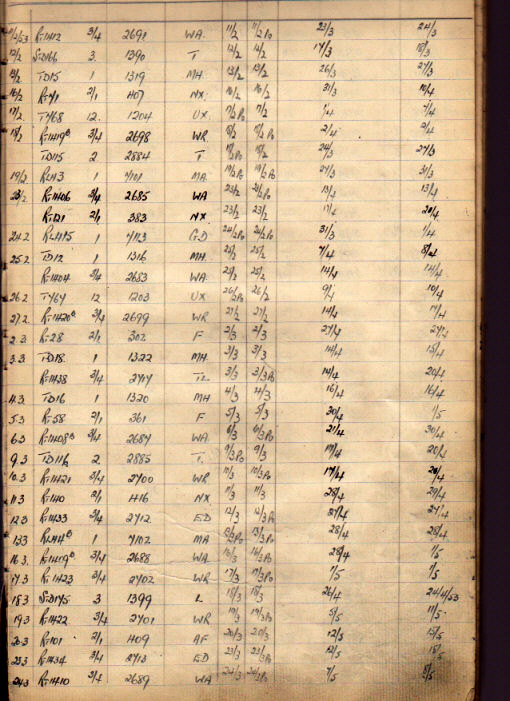 11/2/53 R-1412 3/4 2691 WA 11/2 11/2 Po 23/3 24/3
12/2 S-D166 3. 1390 T 12/2 12/2 17/3 18/3
13/2 T-D15 1 1319 MH. 13/2 13/2 26/3 27/3
16/2 R-Y1 2/1 407 NX. 16/2 16/2 31/3 10/4
17/2 T-Y68 12. 1204 UX. 17/2 Po 17/2 1/4
18/2 R-1419 B 3/4 2698 WR 18/2 2/4 2/4
T-D115 2 2884 T 18/2 24/3 27/3
19/2 R-LH3 1 4101 MA. 19/2 Po 19/2 Po 27/3 31/3
23/2 R-1406 3/4 2685 WA 23/2 23/2 Po 13/4 13/4
2/1 383 NX 23/2 23/2 20/4
24.2 1 4113 GD 24/2 Po 24/2 Po 31/3 1/4
25.2 T-D12 1 1316 MH. 25/2 25/2 7/4 8/4
R-1404 3/4 2683 WA. 25/2 25/2 14/4 14/4
26.2 T-Y67 12 1203 UX 26/2 Po 26/2 9/4 10/4
27.2 R-1420 B 3/4 2699 WR 27/2 27/2 14/4
2.3 R-28 2/1 302 F 2/3 2/3 27/4 27/4
3.3 T-D18. 1 1322 MH 3/3 3/3 14/4 15/4
R-1438 3/4 2717 3/3 3/3 Po 14/4 20/4
4.3 T-D16 1 1320 MH 4/3 4/3 16/4 16/4
5.3 R-58 2/1 361 F 5/3 5/3 30/4 1/5
6.3 R-1408 B 3/4 2687 WA. 6/3 6/3 Po 21/4 30/4
9.3 T-D116 2 2885 T. 9/3 Po 9/3 20/4
10.3 R-1421 3/4 2700 WR 10/3 10/3 Po 17/4 20/4
11.3 R-140 2/1 416 NX 11/3 11/3 28/4 29/4
12.3 R-1433 3/4 2712 ED 12/3 12/3 Po 27/4 27/4
13.3 R-LH4 B 1 4102 MA 13/3 Po 13/3 Po 28/4 28/4
16.3. 3/4 2688 WA. 16/3 16/3 Po 28/4 1/5
17.3 R-1423 3/4 2702 WR 17/3 17/3 Po 1/5 1/5
18.3 S-D175 3 1399 L 18/3 18/3 26/4 24/4/53
19.3 R-1422 3/4 2701 WR 19/3 19/3 Po 5/5 11/5
20.3 R-101 2/1 409 AF 20/3 20/3 12/5 15/5
23.3 R-1434 3/4 2713 ED 23/3 23/3 Po 12/5 18/5
24.3 R-1410 3/4 2689 WA 24/3 24/3 Po 7/5 8/5